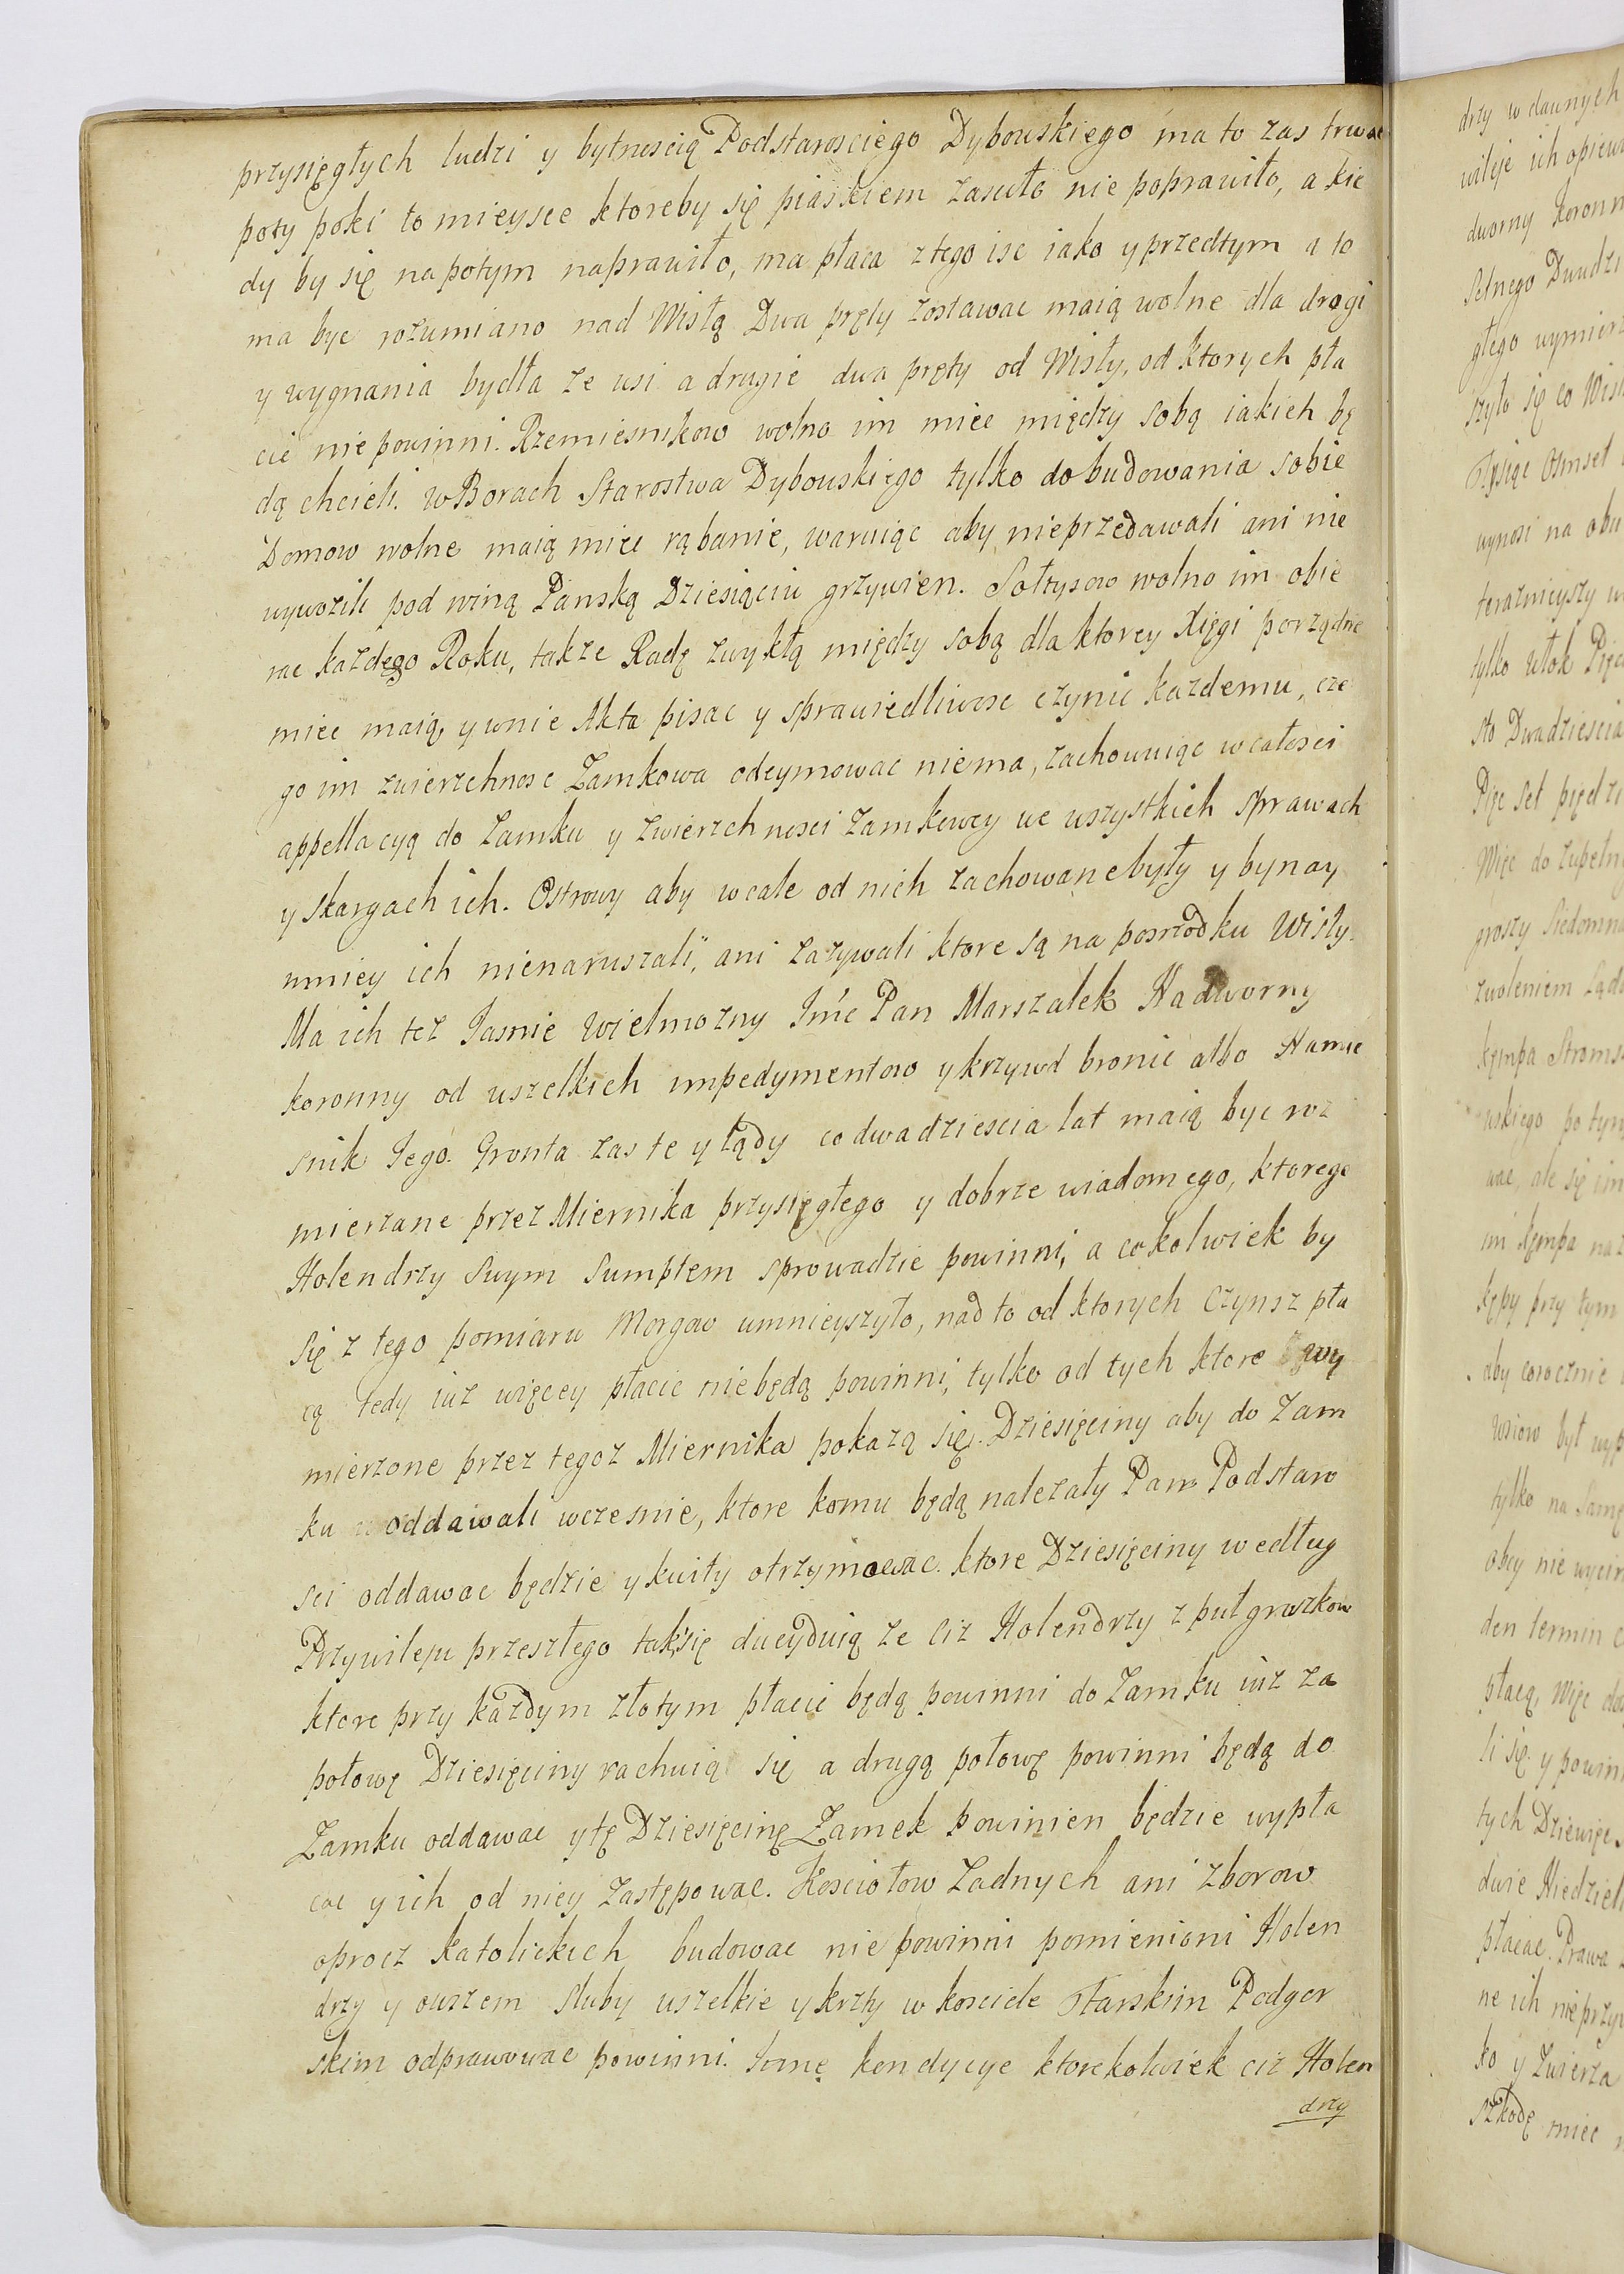 przysięgłych ludzi y bytnoscią Podstarosciego Dybowskiego ma to zas trwac
poty poki to mieysce ktoreby się piaskiem zasuło nie poprawiło, a kie
dy by się napotym naprawiło, ma płaca z tego isc iako y przedtym a to
ma byc rozumiano nad Wisłą Dwa pręty zostawac maią wolne dla drogi
y wygnania bydła ze wsi a drugie dwa pręty od Wisły, od ktorych pła
cic nie powinni. Rzemiesnikow wolno im miec między sobą iakich bę
dą chcieli. w Borach Starostwa Dybowskiego tylko do budowania sobie
Domow wolne maią miec rąbanie, waruiąc aby nieprzedawali ani nie
wywozili pod winą Panską Dziesiąciu grzywien. Sołtysow wolno im obie
rac kazdego Roku, takze Radę zwykłą między sobą dla ktorey Xięgi porządne
miec maią, y wnie Akta pisac y sprawiedliwosc czynic kazdemu, cze
go im zwierzchnosc Zamkowa odeymowac niema, zachowuiąc wcałosci
appellacyą do Zamku y zwierzchnosci Zamkowey we wszystkich sprawach
y skargach ich. Ostrowy aby wcale od nich zachowane były y bynay
mniey ich nienaruszali, ani zazywali ktore są na posrzodku Wisły.
Ma ich tez Jasnie Wielmozny Jmc Pan Marszałek Nadworny
koronny od wszelkich impedymentow y krzywd bronic albo Namie
snik Jego. Gronta zas te y łądy co dwadziescia lat maią byc roz
mierzane przez Miernika przysięgłego y dobrze wiadomego, ktorego
Holendrzy swym sumptem sprowadzic powinni, a cokolwiek by
się z tego pomiaru Morgow umnieyszyło, nad to od ktorych Czynsz pła
cą tedy iuz więcey płacic niebędą powinni, tylko od tych ktore wy
mierzone przez tegoz Miernika pokazą się. Dziesięciny aby do Zam
ku oddawali wczesnie, ktore komu będą nalezały Pan Podstaro
sci oddawac będzie y kwity otrzymowac. ktore Dziesięciny według
Przywileju przeszłego tak się decyduią ze ciz Holendrzy z puł groszkow
ktore przy kazdym złotym płacic będą powinni do Zamku iuz za
połowę Dziesięciny rachuią się a drugą połowę powinni będą do
Zamku oddawac y tę Dziesięcinę Zamek powinien będzie wypła
cac y ich od niey zastępowac. Kosciołow zadnych ani zborow
oprocz Katolickich budowac nie powinni pomienioni Holen
drzy y owszem sluby wszelkie y krzty w kosciele Farskim Podgor
skim odprawowac powinni. Jomę kondycye ktorekolwiek ciz Holen
drzy

drzy w dawnych
dworny koronn
Setnego Dwudzi
głego wymierz
szyło się co Wis
Tysiąc Osmset
wynosi na obu
teraznieyszy
tylko włok Pięc
sto Dwadziescia
Pięc set piędzi
Więc do zupełn
groszy Siedomna
zwoleniem Sądo
kępa
uskiego po tym
wac, ale się im
im kępa na
kępy przy tym
aby corocznie
tylko na samę
obcy nie
den termin
płacą, Więc
li się y powin
tych Dziewięc
dwie Niedziel
płacac. Prawa
ne ich nie przy
ko y Zwierza
szkodę miec